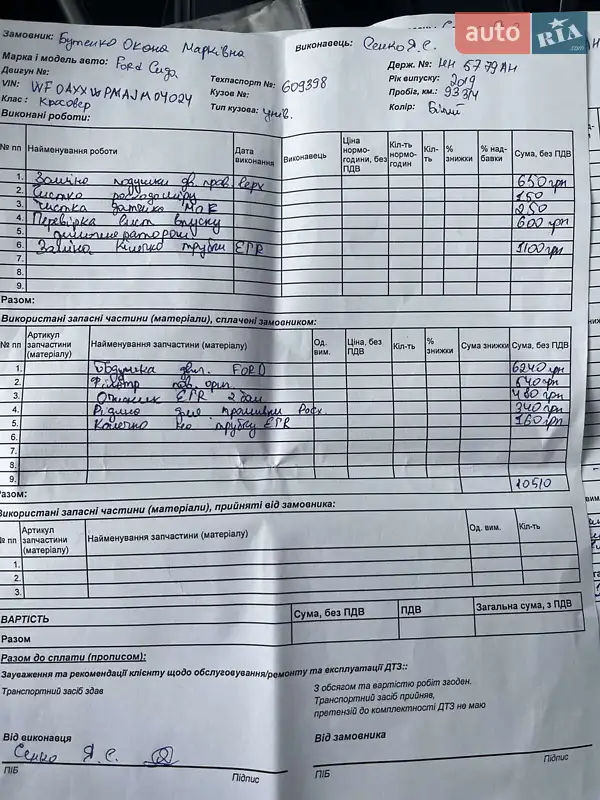 auto RIA.com
Замовник: Бутенко Оксана Марківна
Виконавець: Сенко Я.С.
Марка і модель авто: Ford Cuga
Держ. №: 5779АН
Двигун №:
Техпаспорт №: 609398
Рік випуску: 2019
VIN: WF0AXXWPMAJM04024
Кузов №:
Пробіг, км.: 93374
Клас: Кросовер
Тип кузова: унів.
Колір: Білий
Виконані роботи:
№ пп Найменування роботи Дата виконання Виконавець Ціна нормо-години, без ПДВ Кіл-ть нормо-годин Кіл-ть % знижки % над-бавки Сума, без ПДВ
1. Заміна подушки дв. прав. верх 650 грн
2. Чистка расходоміру 150
3. Чистка датчика МАР 250
4. Перевірка сист впуску 600 грн
5. димогенератором
6. Заміна кілечка трубки EPR 1100 грн
7.
8.
9.
Разом:
Використані запасні частини (матеріали), сплачені замовником:
№ пп Артикул запчастини (матеріалу) Найменування запчастини (матеріалу) Од. вим. Ціна, без ПДВ Кіл-ть % знижки Сума знижки Сума, без ПДВ
1. Подушка двиг. FORD 6240 грн
2. Фільтр пов. ориг. 540 грн
3. EPR 480 грн
4. Рідина для промивки Расх 340 грн
5. Кілечко на трубку EPR 160 грн
6.
7.
8.
9.
Разом: 10510
Використані запасні частини (матеріали), прийняті від замовника:
№ пп Артикул запчастини (матеріалу) Найменування запчастини (матеріалу) Од. вим. Кіл-ть
1.
2.
3.
ВАРТІСТЬ Сума, без ПДВ ПДВ Загальна сума, з ПДВ
Разом
Разом до сплати (прописом):
Зауваження та рекомендації клієнту щодо обслуговування/ремонту та експлуатації ДТЗ::
Транспортний засіб здав
З обсягом та вартістю робіт згоден.
Транспортний засіб прийняв,
претензій до комплектності ДТЗ не маю
Від виконавця
Від замовника
Сенко Я. С.
ПІБ Підпис
ПІБ Підпис